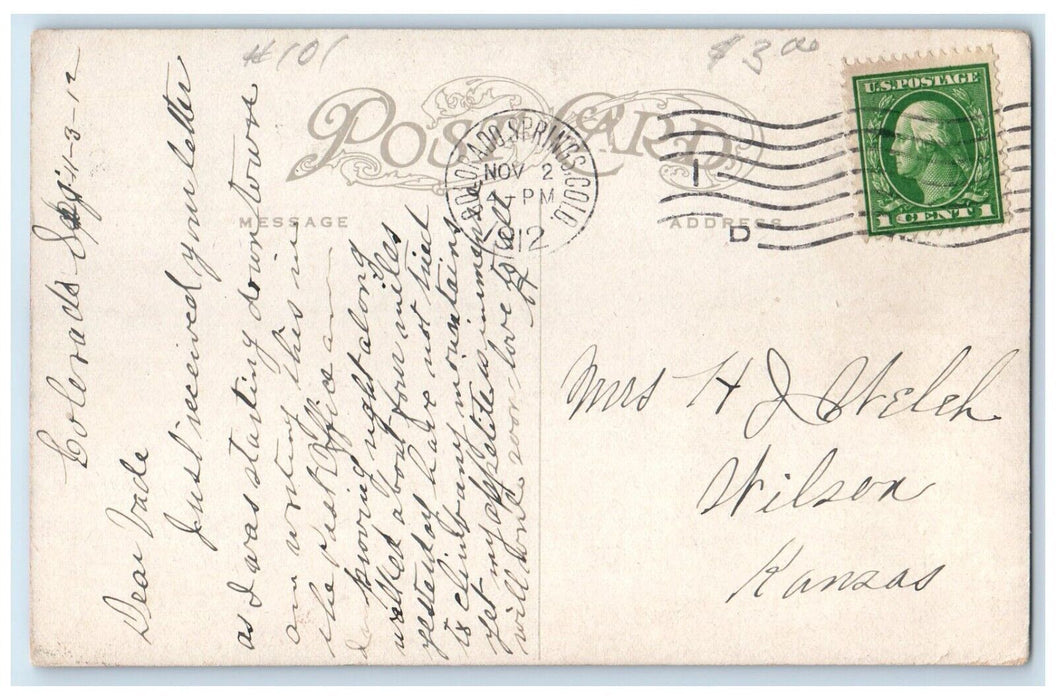 #101
$3.00
POST CARD
MESSAGE
ADDRESS
COLORADO SPRINGS, COLO.
NOV 2
4-PM
1912
1
D
U.S. POSTAGE
1 CENT 1
Colorado Spgs 11-3-12
Dear Vade
Just received your letter
as I was starting down town
am writing this in
the Post Office am
improving right along
walked about four miles
yesterday have not tried
to climb any mountains
yet my appetite is immense
will write soon love to all
H
Mrs H J Welch
Wilson
Kansas